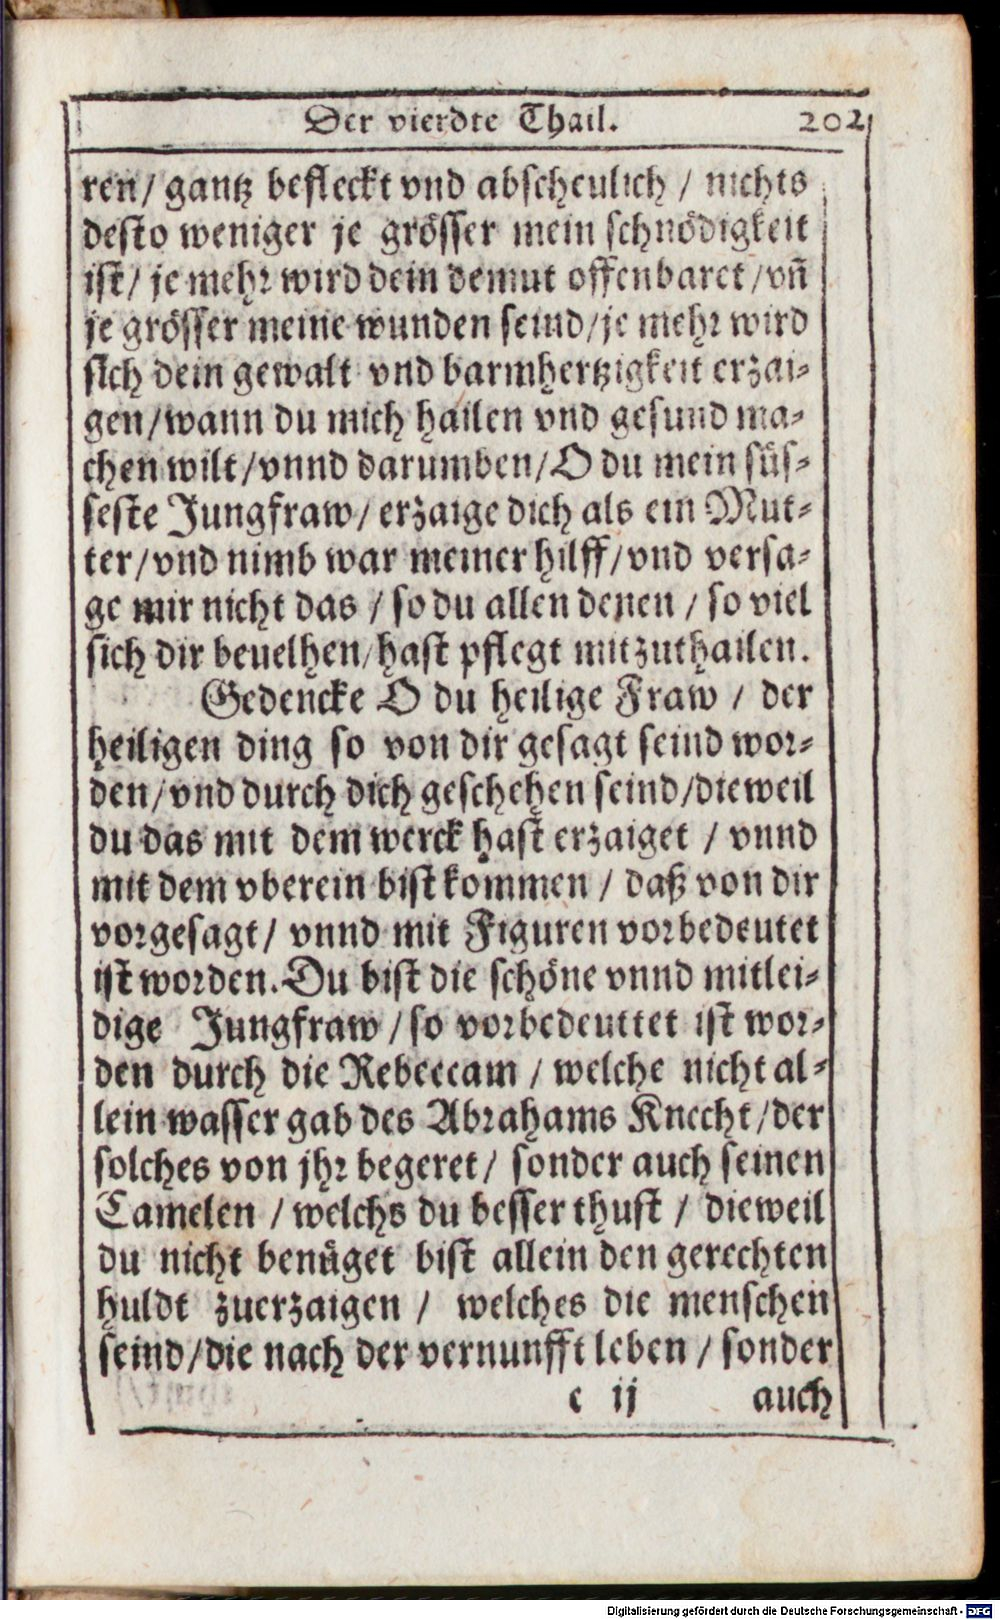 Der vierdte Thail. 202
ren/ gantz befleckt vnd abscheulich / nichts
desto weniger je grösser mein schnödigkeit
ist/ je mehr wird dein demut offenbaret /vñ
je grösser meine wunden seind/je mehr wird
sich dein gewalt vnd barmhertzigkeit erzai-
gen/wann du mich hailen vnd gesund ma-
chen wilt/vnnd darumben/O du mein süs-
seste Jungfraw/ erzaige dich als ein Mut-
ter/vnd nimb war meiner hilff/vnd versa-
ge mir nicht das / so du allen denen / so viel
sich dir beuelhen/hast pflegt mitzuthailen.
Gedencke O du heilige Fraw / der
heiligen ding so von dir gesagt seind wor-
den/vnd durch dich geschehen seind/dieweil
du das mit dem werck hast erzaiget / vnnd
mit dem vberein bist kommen / daß von dir
vorgesagt/ vnnd mit Figuren vorbedeutet
ist worden. Du bist die schöne vnnd mitlei-
dige Jungfraw /so vorbedeuttet ist wor-
den durch die Rebeccam / welche nicht al-
lein wasser gab des Abrahams Knecht/der
solches von jhr begeret/ sonder auch seinen
Camelen / welchs du besser thust / dieweil
du nicht benüget bist allein den gerechten
huldt zuerzaigen / welches die menschen
seind/die nach der vernunfft leben / sonder
c ij auch
Digitalisierung gefördert durch die Deutsche Forschungsgemeinschaft - DFG